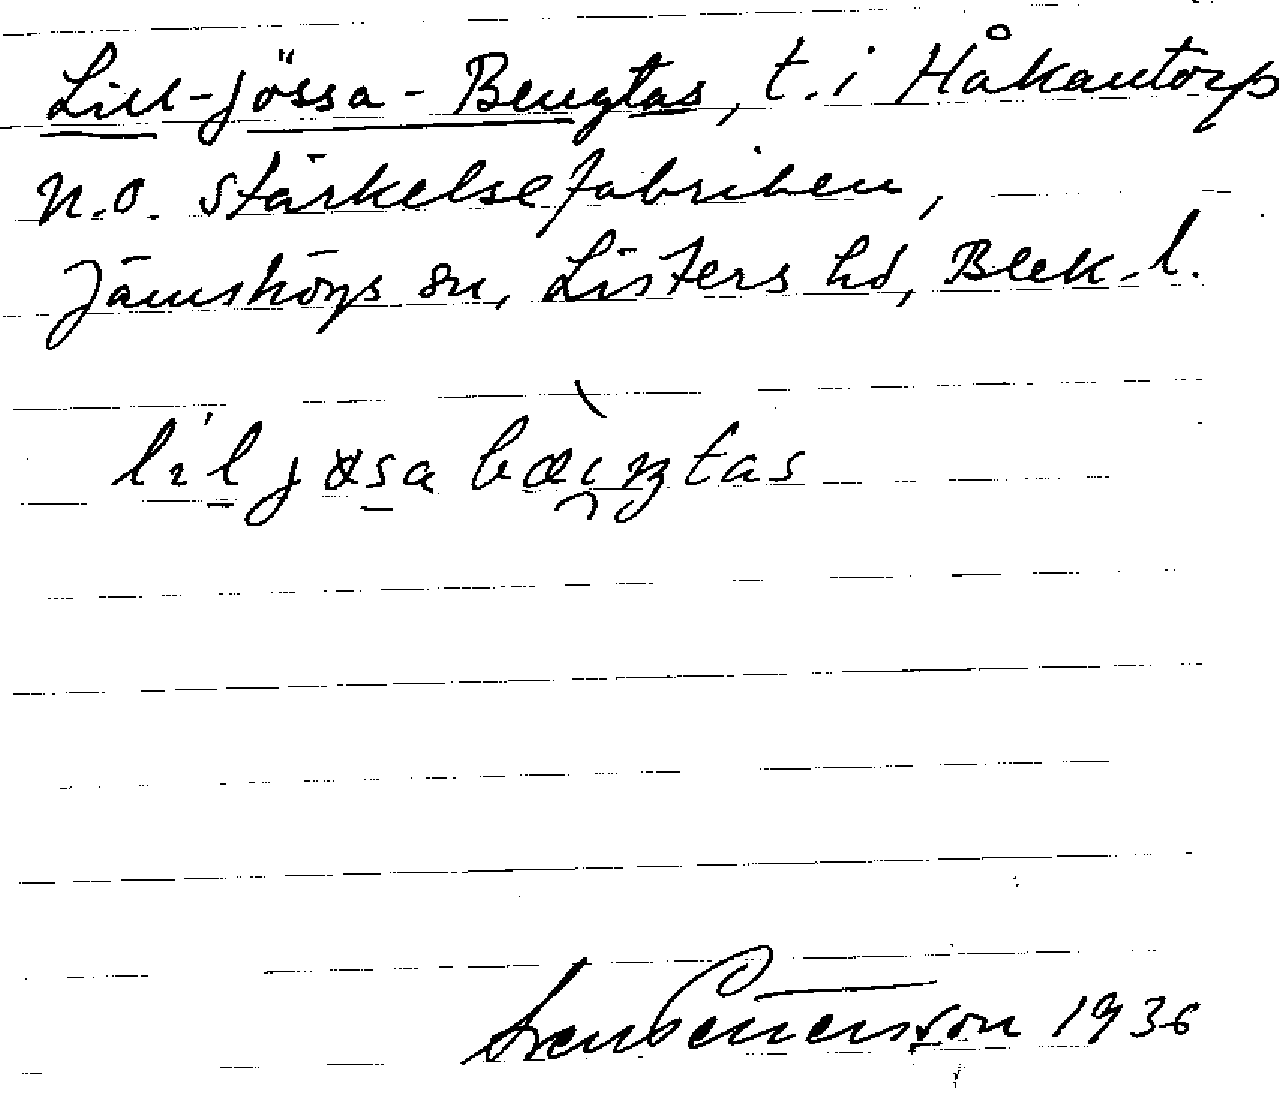 Lill-Jössa-Bengtas, t. i Håkantorp
n.o. Stärkelsefabriken,
Jämshögs sn, Listers hd, Blek. l.
lil jøsa bæiŋtas
1936